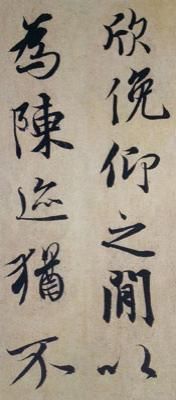 欣俛仰之閒以
為陳迹猶不